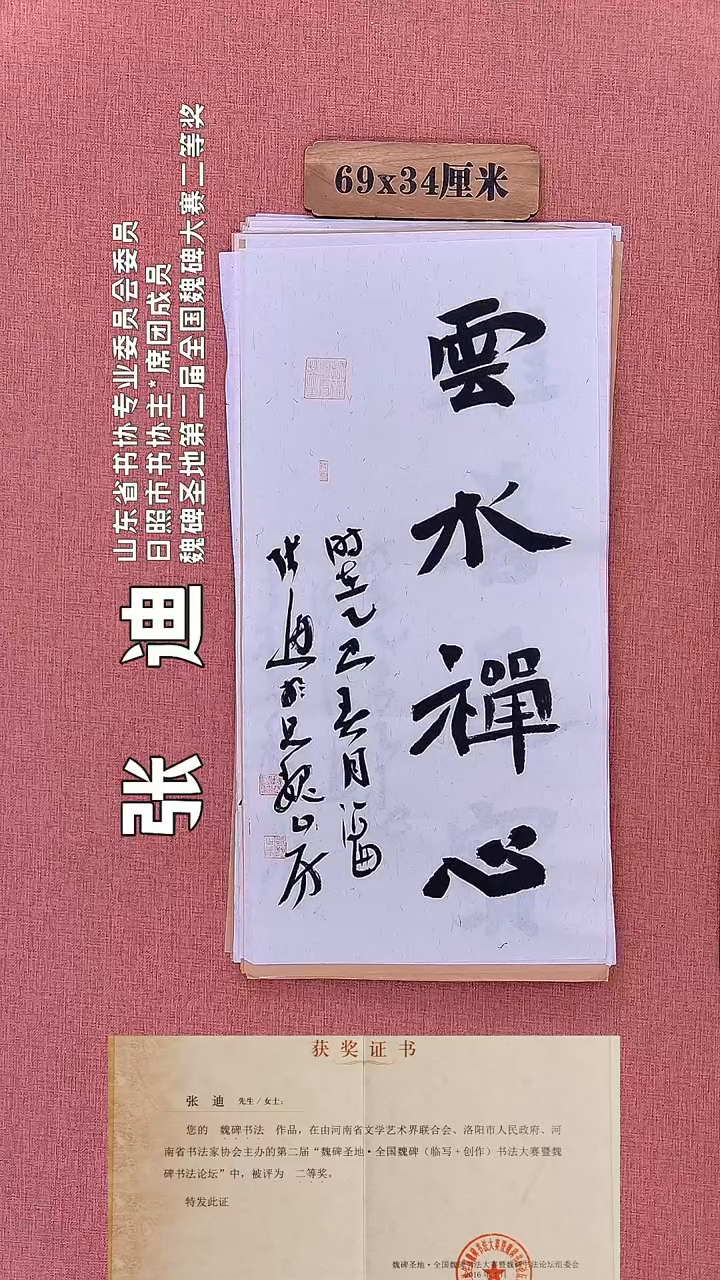 69x34厘米
雲水禪心
时在乙巳春月
张迪
山东省书协专业委员会委员
日照市书协主*席团成员
魏碑圣地第二届全国魏碑大赛二等奖
张 迪
获奖证书
张 迪 先生/女士：
您的 魏碑书法 作品，在由河南省文学艺术界联合会、洛阳市人民政府、河
南省书法家协会主办的第二届“魏碑圣地·全国魏碑（临写+创作）书法大赛暨魏
碑书法论坛”中，被评为 二等奖。
特发此证
魏碑圣地·全国魏碑书法大赛暨魏碑书法论坛组委会